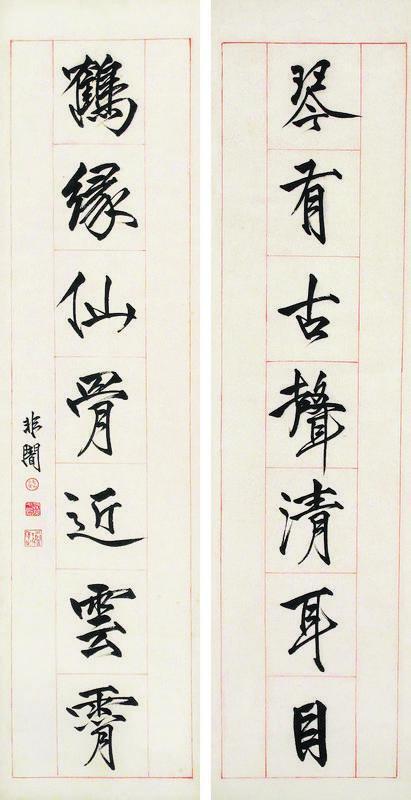 琴有古聲清耳目
鶴緣仙骨近雲霄
非闇